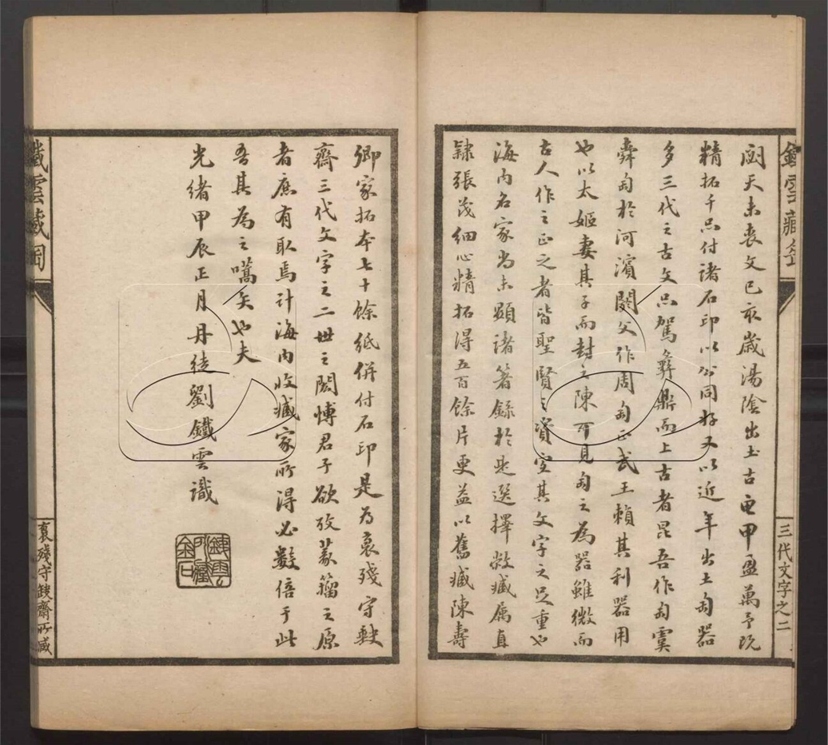 鐵雲藏匋
三代文字之二
閟天未喪文己亥歲湯陰出土古龜甲盈萬予既
精拓千品付諸石印以公同好又以近年出土匋器
多三代之古文品駕彝鼎而上古者昆吾作匋寞
舜匋於河濱閼父作周匋正武王賴其利器用
也以太姬妻其子而封之陳可見匋之為器雖微而
古人作之正之者皆聖賢之資宜其文字之足重也
海內名家尚未顯諸箸錄於是選擇敝藏屬直
隸張茂細心精拓得五百餘片更益以舊藏陳壽
卿家拓本七十餘紙併付石印是為裒殘守缺
齋三代文字之二世之閎博君子欲攷篆籀之原
者庶有取焉計海內收藏家所得必數倍于此
吾其為之嚆矢也夫
光緒甲辰正月丹徒劉鐵雲識
鐵雲所藏金石
鐵雲藏匋
裒殘守缺齋所藏